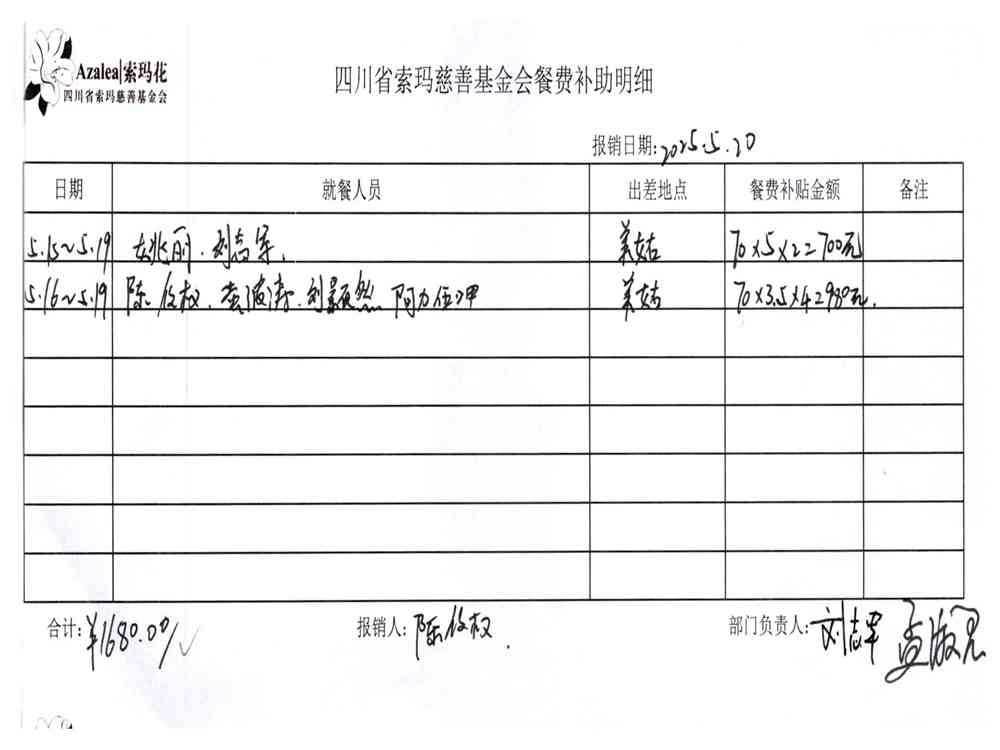 Azalea|索玛花
四川省索玛慈善基金会
四川省索玛慈善基金会餐费补助明细
报销日期:2025.5.20
日期 就餐人员 出差地点 餐费补贴金额 备注
5.15~5.19 姚丽.刘志军. 美姑 70×5×2=700元
5.16~5.19 陈俊权.黄波涛.刘景然 阿力伍呷 美姑 70×3.5×4=980元.
合计:¥1680.00/ 报销人:陈俊权. 部门负责人:刘志军